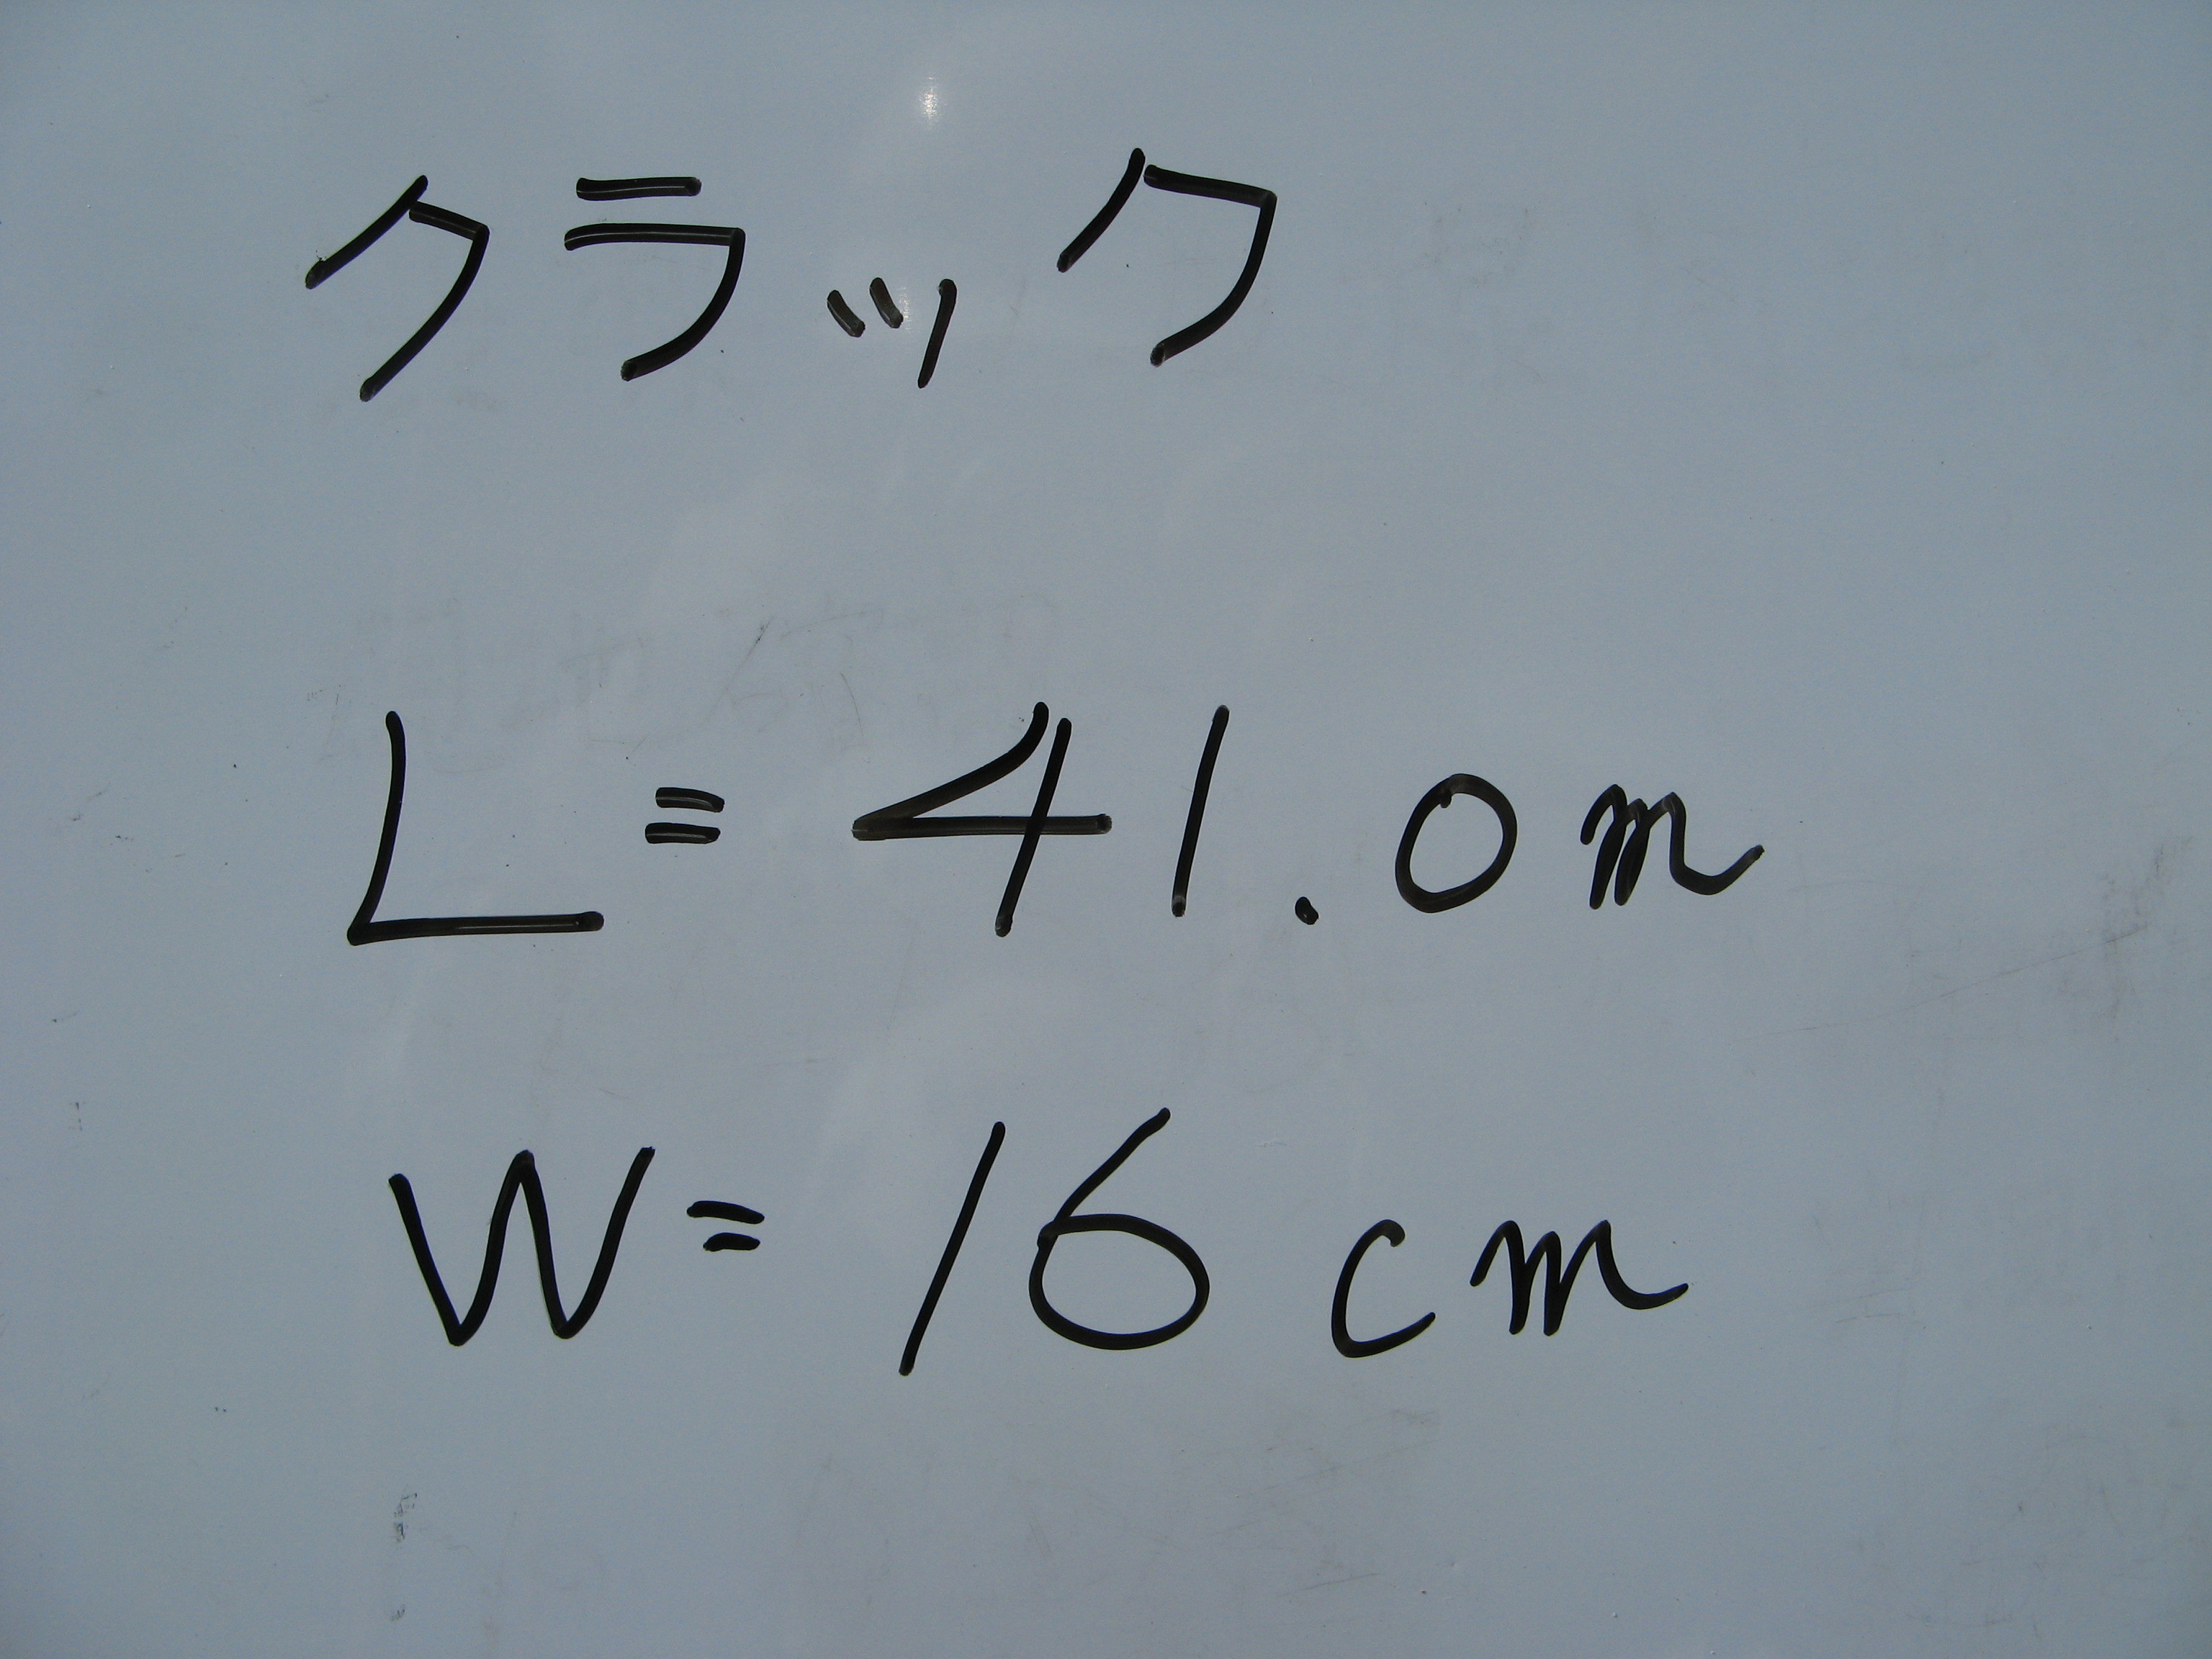 クラック
L=41.0m
W=16cm